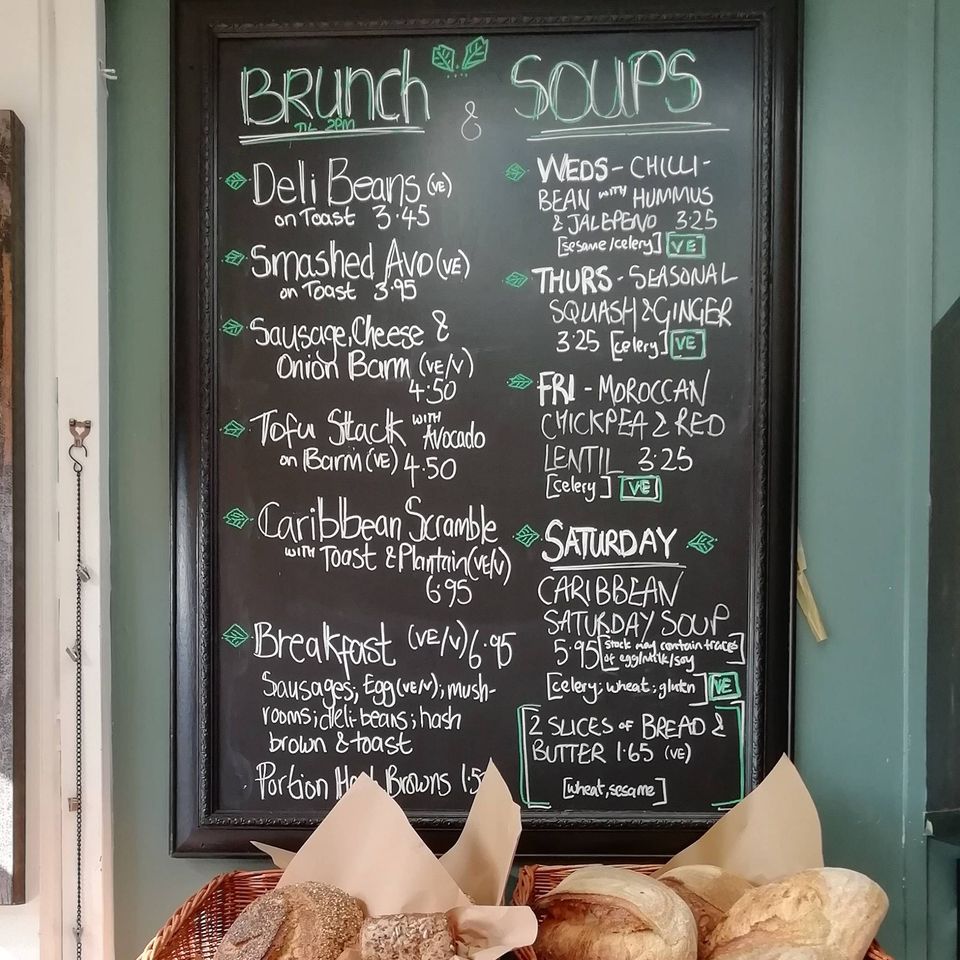 BRunch
TIL 2PM
Deli Beans (VE)
on Toast 3.45
Smashed Avo (VE)
on Toast 3.95
Sausage, Cheese &
Onion Barm (VE/V)
4.50
Tofu Stack WITH Avocado
on Barm (VE) 4.50
Caribbean Scramble
WITH Toast & Plantain (VE/V)
6.95
Breakfast (VE/V) 6.95
Sausages; Egg (VE/V); mush-
rooms; deli-beans; hash
brown & toast
Portion Hash Browns
& SOUPS
WEDS - CHILLI-
BEAN WITH HUMMUS
& JALEPENO 3.25
[sesame/celery] VE
THURS - SEASONAL
SQUASH & GINGER
3.25 [celery] VE
FRI - MOROCCAN
CHICKPEA & RED
LENTIL 3.25
[celery] VE
SATURDAY
CARIBBEAN
SATURDAY SOUP
5.95 [stock may contain traces
of egg/milk/soy]
[celery; wheat; gluten] VE
2 SLICES of BREAD &
BUTTER 1.65 (VE)
[wheat, sesame]